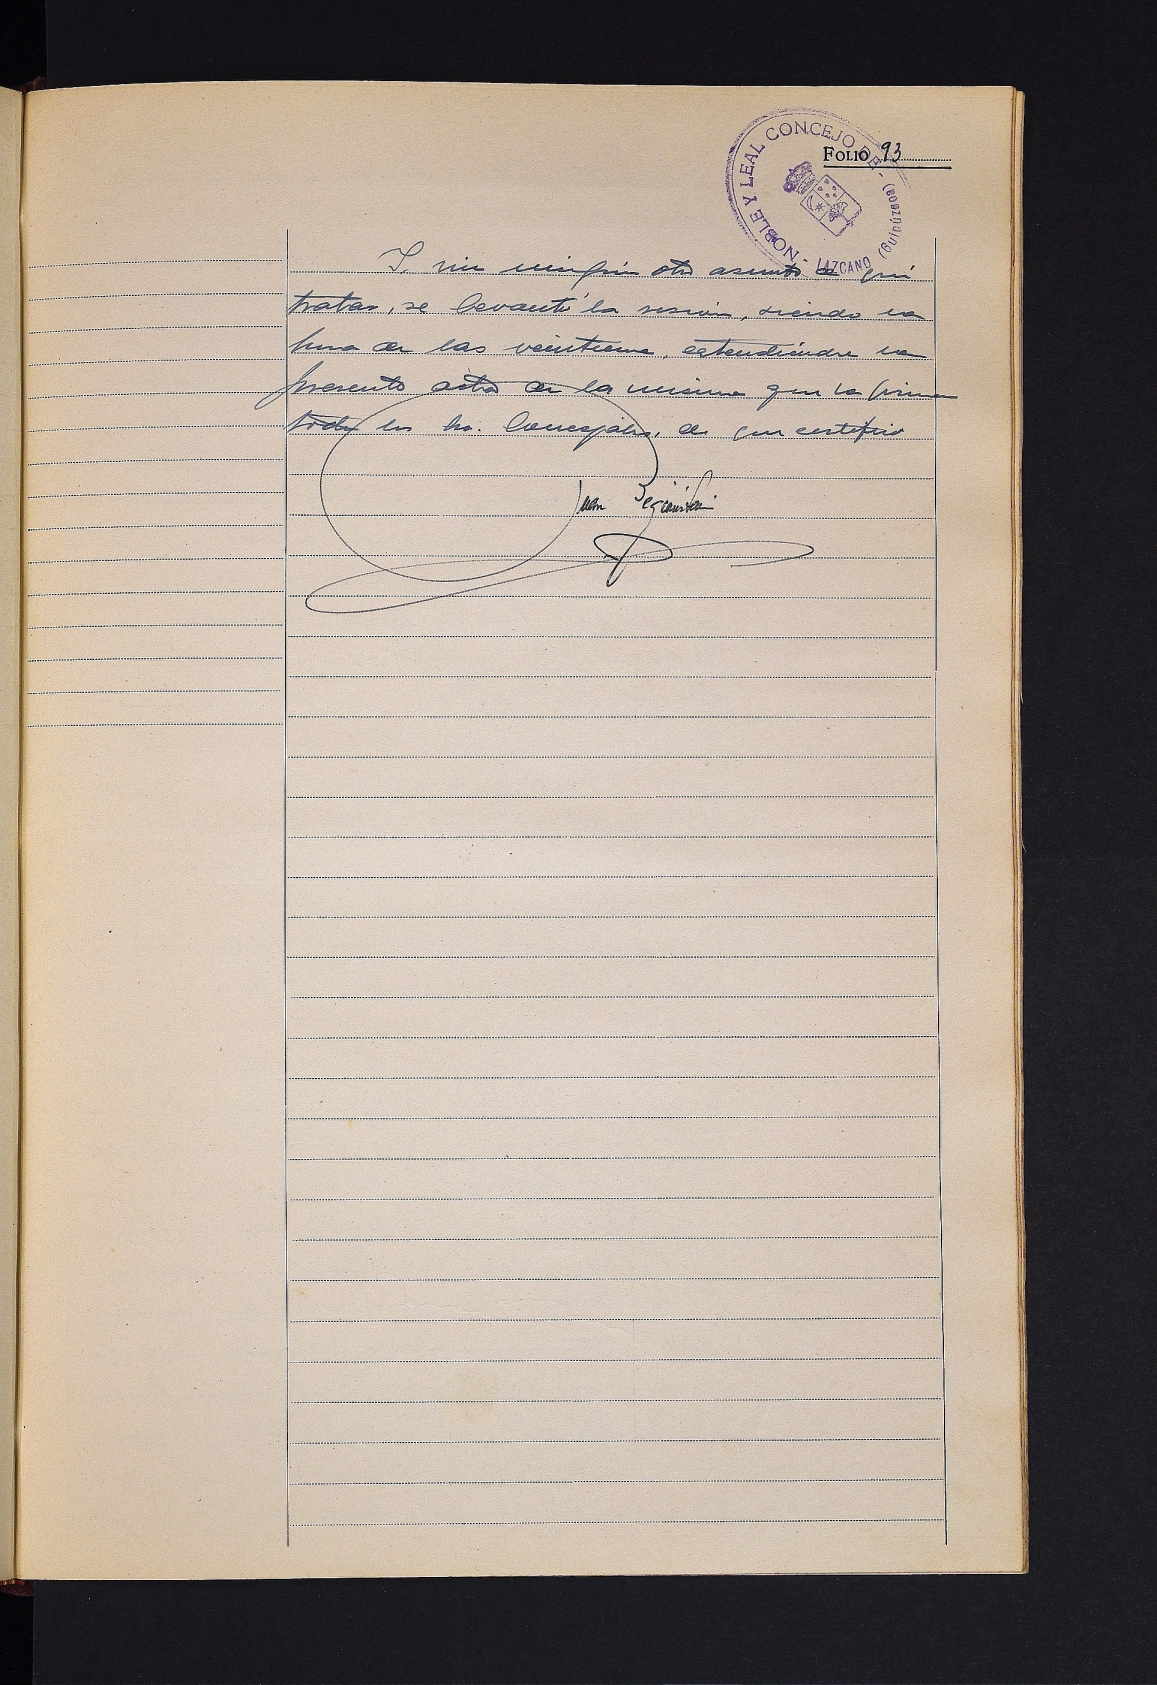 NOBLE Y LEAL CONCEJO DE - LAZCANO (Guipúzcoa)
FOLIO 93
Y sin ningún otro asunto de que
tratar, se levantó la sesión, siendo la
hora de las veintiuna, extendiéndose la
presente acta de la misma que la firman
todos los Sres. Concejales, de que certifico
Juan